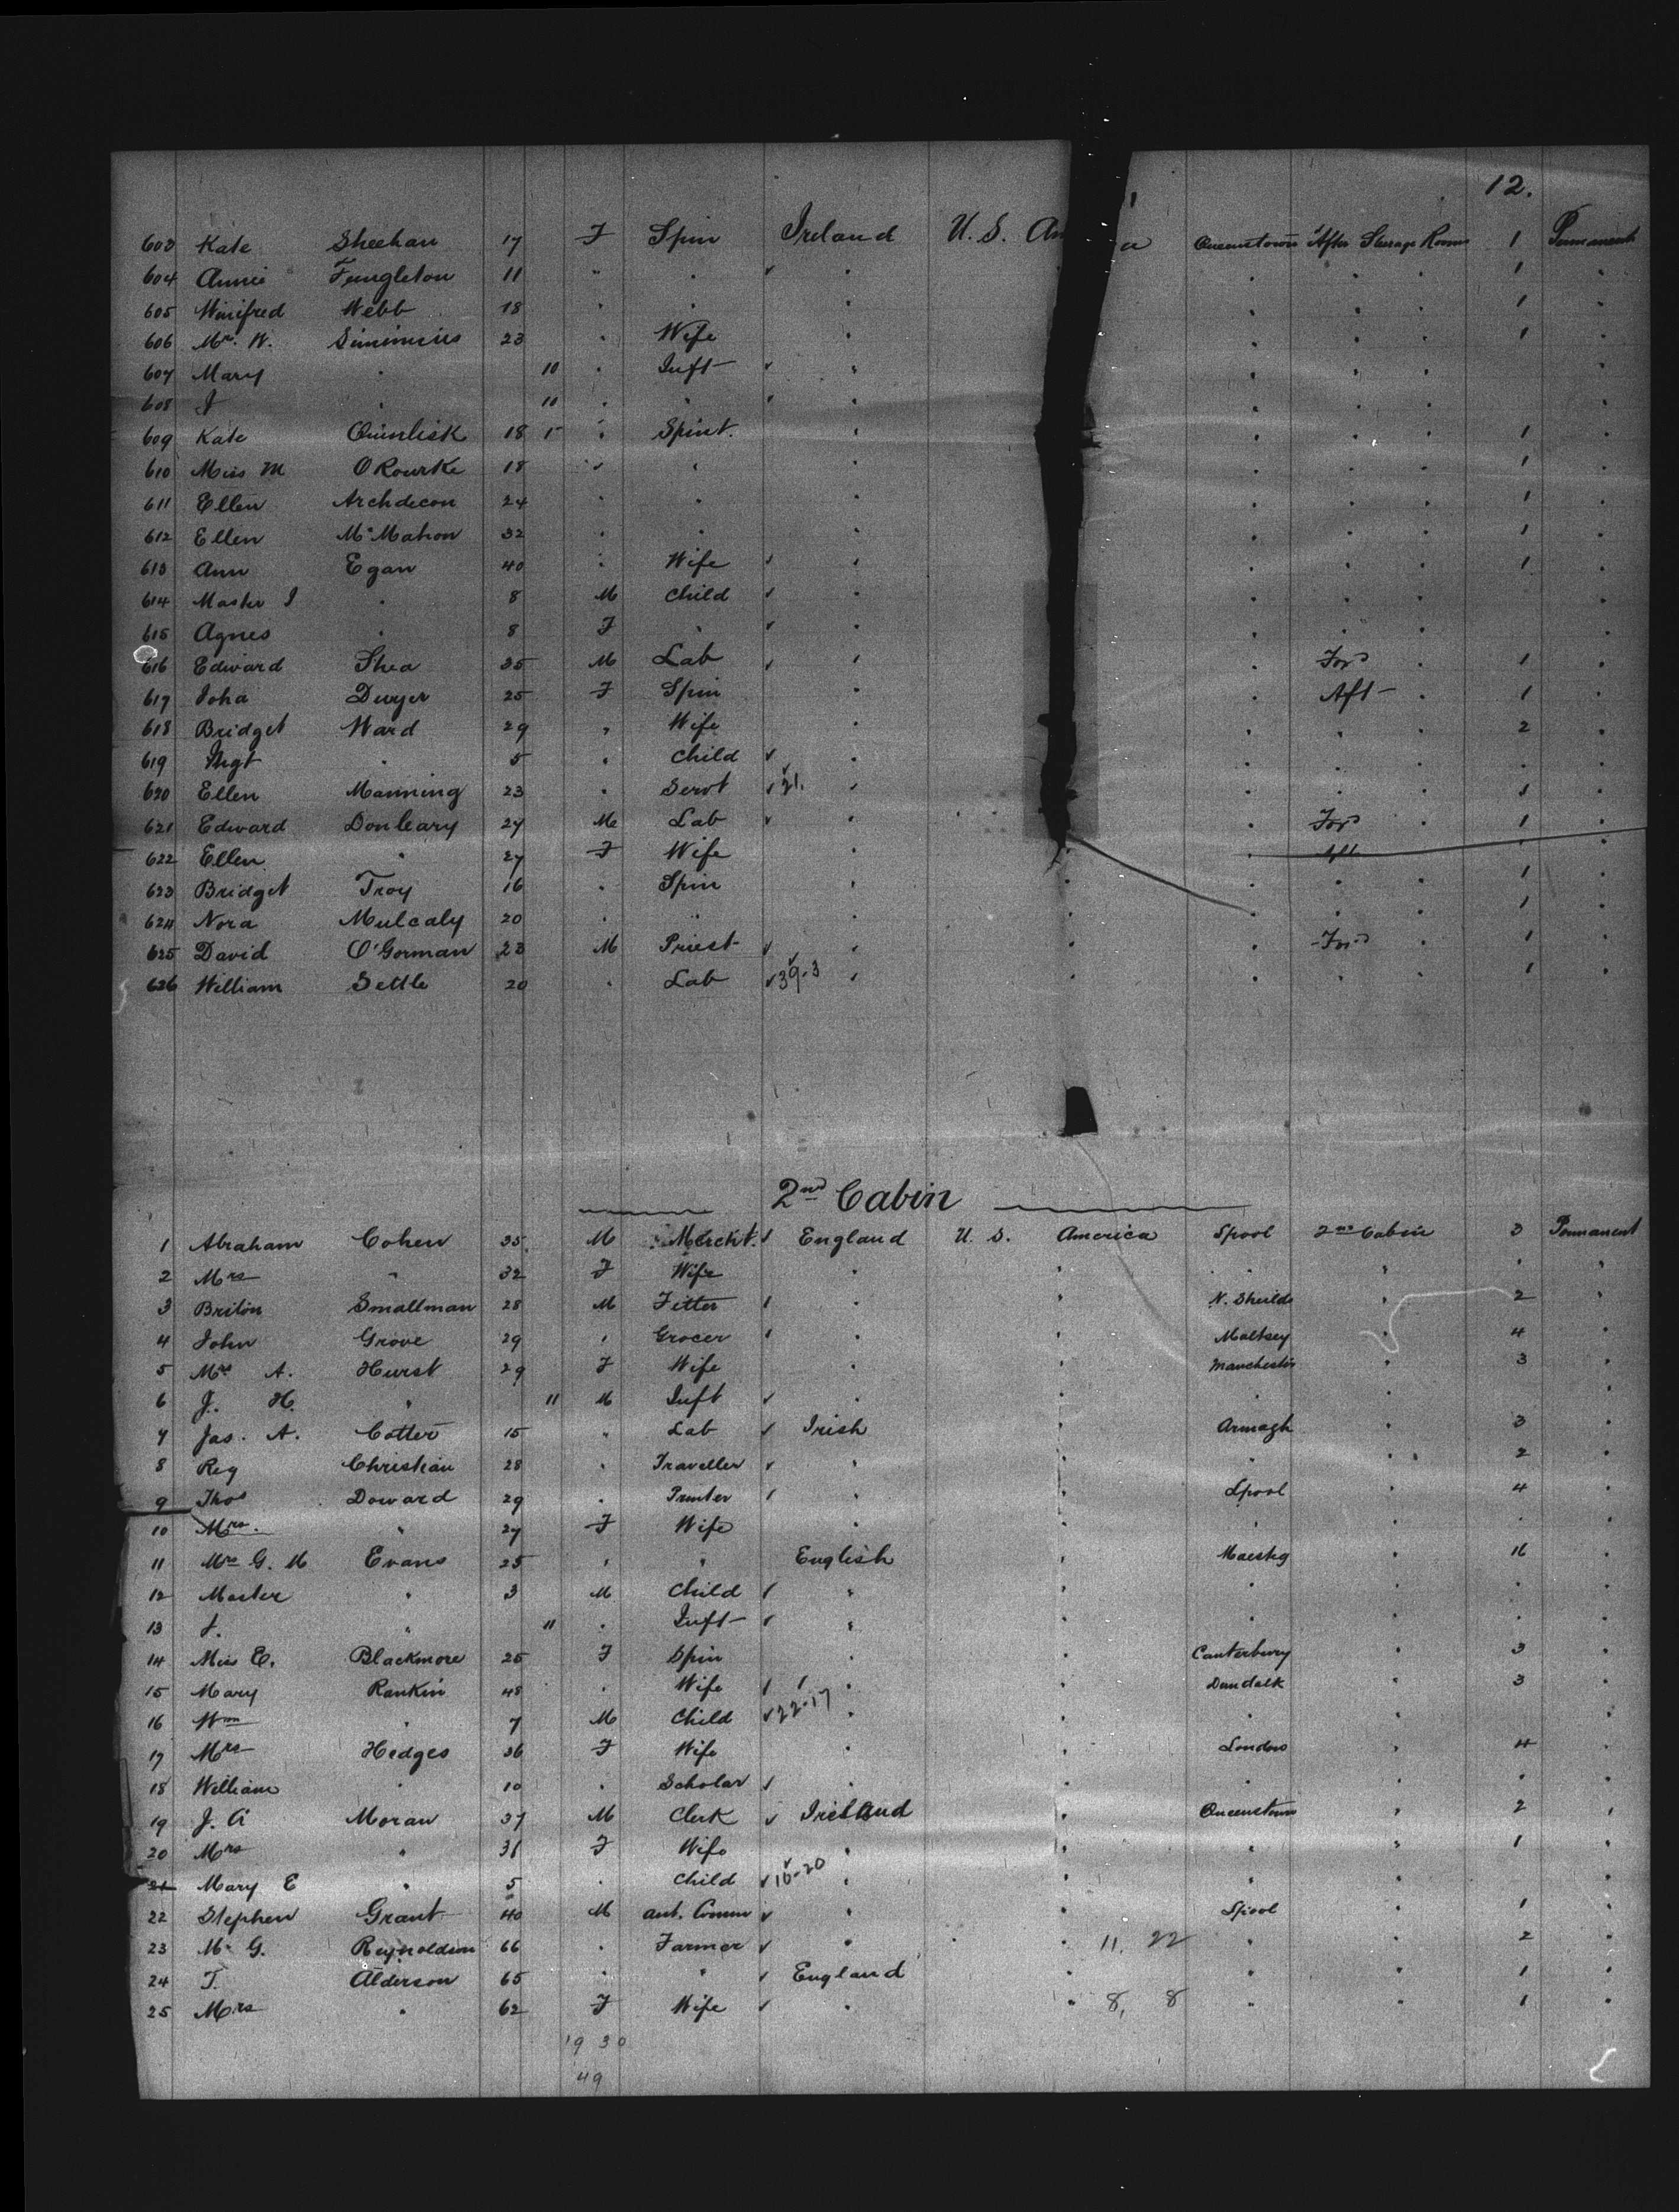 12.
603 Kate Sheehan 17 F Spin Ireland U.S. Am a Queenstown After Steerage Rooms 1 Permanent
604 Annie 11 " " ✓ " " " " " 1 "
605 Winifred Webb 18 " " " " " " " 1 "
606 Mrs. W. 23 " Wife " " " " " 1 "
607 Mary " 10 " Inft ✓ " " " " " "
608 J " 10 " " ✓ " " " " " "
609 Kate Quinlisk 18 " Spint. " " " " " 1 "
610 Miss M O Rourke 18 " " " " " " " 1 "
611 Ellen Archdecon 24 " " " " " " " 1 "
612 Ellen McMahon 32 " " " " " " " 1 "
613 Ann Egan 40 " Wife ✓ " " " " " 1 "
614 Master J " 8 M Child ✓ " " " " " "
615 Agnes " 8 F " ✓ " " " " " "
616 Edward Shea 35 M Lab ✓ " " Ford " 1 "
617 Joha Dwyer 25 F Spin " " Aft " 1 "
618 Bridget Ward 29 " Wife " " " " 2 "
619 Mgt " 5 " Child ✓ " " " " " "
620 Ellen Manning 23 " Servt ✓ 21. " " " " 1 "
621 Edward Donleary 27 M Lab ✓ " " Ford " 1 "
622 Ellen " 27 F Wife " " " Aft " "
623 Bridget Troy 16 " Spin " " " " " 1 "
624 Nora Mulcaly 20 " " " " " " " 1 "
625 David O'Gorman 23 M Priest ✓ " " " Ford " 1 "
626 William Settle 20 " Lab ✓ 39-3 " " " " " 1 "
2nd Cabin
1 Abraham Cohen 35 M Mercht. ✓ England U.S. America Lpool 2nd Cabin 3 Permanent
2 Mrs " 32 F Wife " " " " " "
3 Briton Smallman 28 M Fitter ✓ " " N. Sheilds " 2 "
4 John Grove 29 " Grocer ✓ " " Maltsey " 4 "
5 Mrs A. Hurst 29 F Wife " " Manchester " 3 "
6 J. H. " 11 M Inft ✓ " " " " "
7 Jas. A. Cotter 15 " Lab ✓ Irish " Armagh " 3 "
8 Reg Christian 28 " Traveller ✓ " " " " 2 "
9 Thos Doward 29 " Printer ✓ " " Lpool " 4 "
10 Mrs. " 27 F Wife " " " " " "
11 Mrs G. M Evans 25 " " English " Maesteg " 16 "
12 Master " 3 M Child ✓ " " " " " "
13 J. " 11 " Inft ✓ " " " " " "
14 Miss E. Blackmore 25 F Spin " " Canterbury " 3 "
15 Mary Rankin 48 " Wife ✓ " " Dundalk " 3 "
16 Wm " 7 M Child ✓ 22-17 " " " " " "
17 Mrs Hedges 36 F Wife " " London " 4 "
18 William " 10 " Scholar ✓ " " " " " "
19 J. A Moran 37 M Clerk ✓ Ireland " Queenstown " 2 "
20 Mrs " 31 F Wife " " " " 1 "
21 Mary E " 5 " Child ✓ 16-20 " " " " " "
22 Stephen Grant 40 M ✓ " " Lpool " 1 "
23 Mr G. Reynoldson 66 " Farmer ✓ " " 11. 22 " " 2 "
24 T. Alderson 65 " " ✓ England " " " 1 "
25 Mrs " 62 F Wife ✓ " " 8, 8 " " 1 "
19 30
49